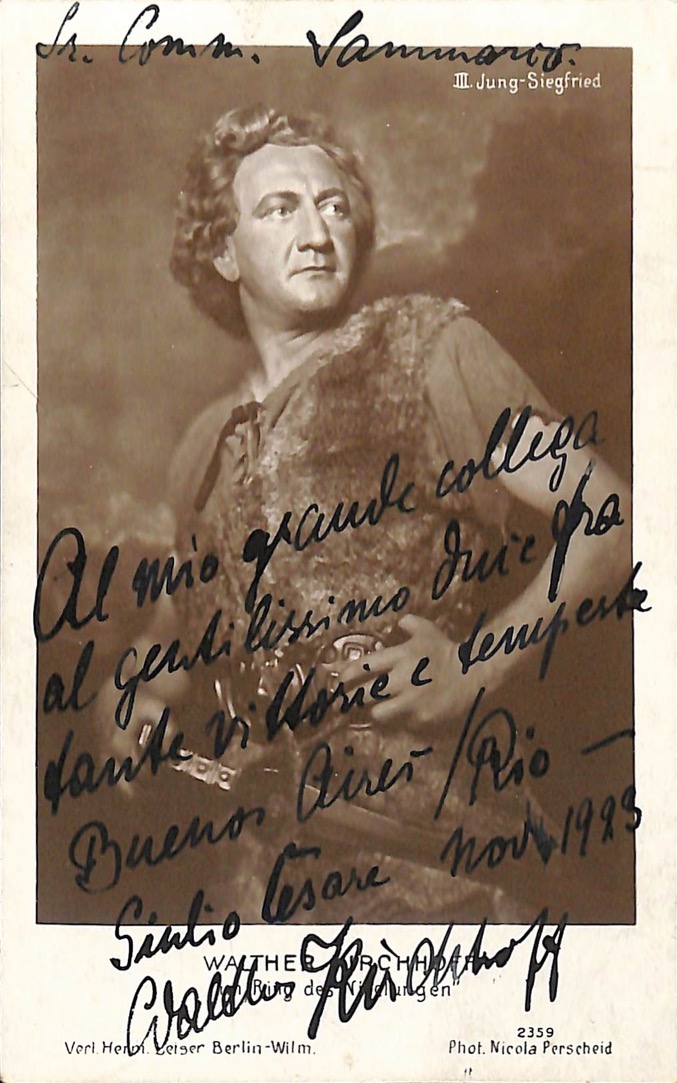 Sr. Comm. Sammarco.
III. Jung-Siegfried
Al mio grande collega
al gentilissimo fra
tante vittorie e tempeste
Buenos Aires / Rio —
Giulio Cesare Nov. 1923
WALTHER KIRCHHOFF
Walther Kirchhoff
"Ring des Nibelungen"
2359
Verl. Herm. Leiser Berlin-Wilm.
Phot. Nicola Perscheid